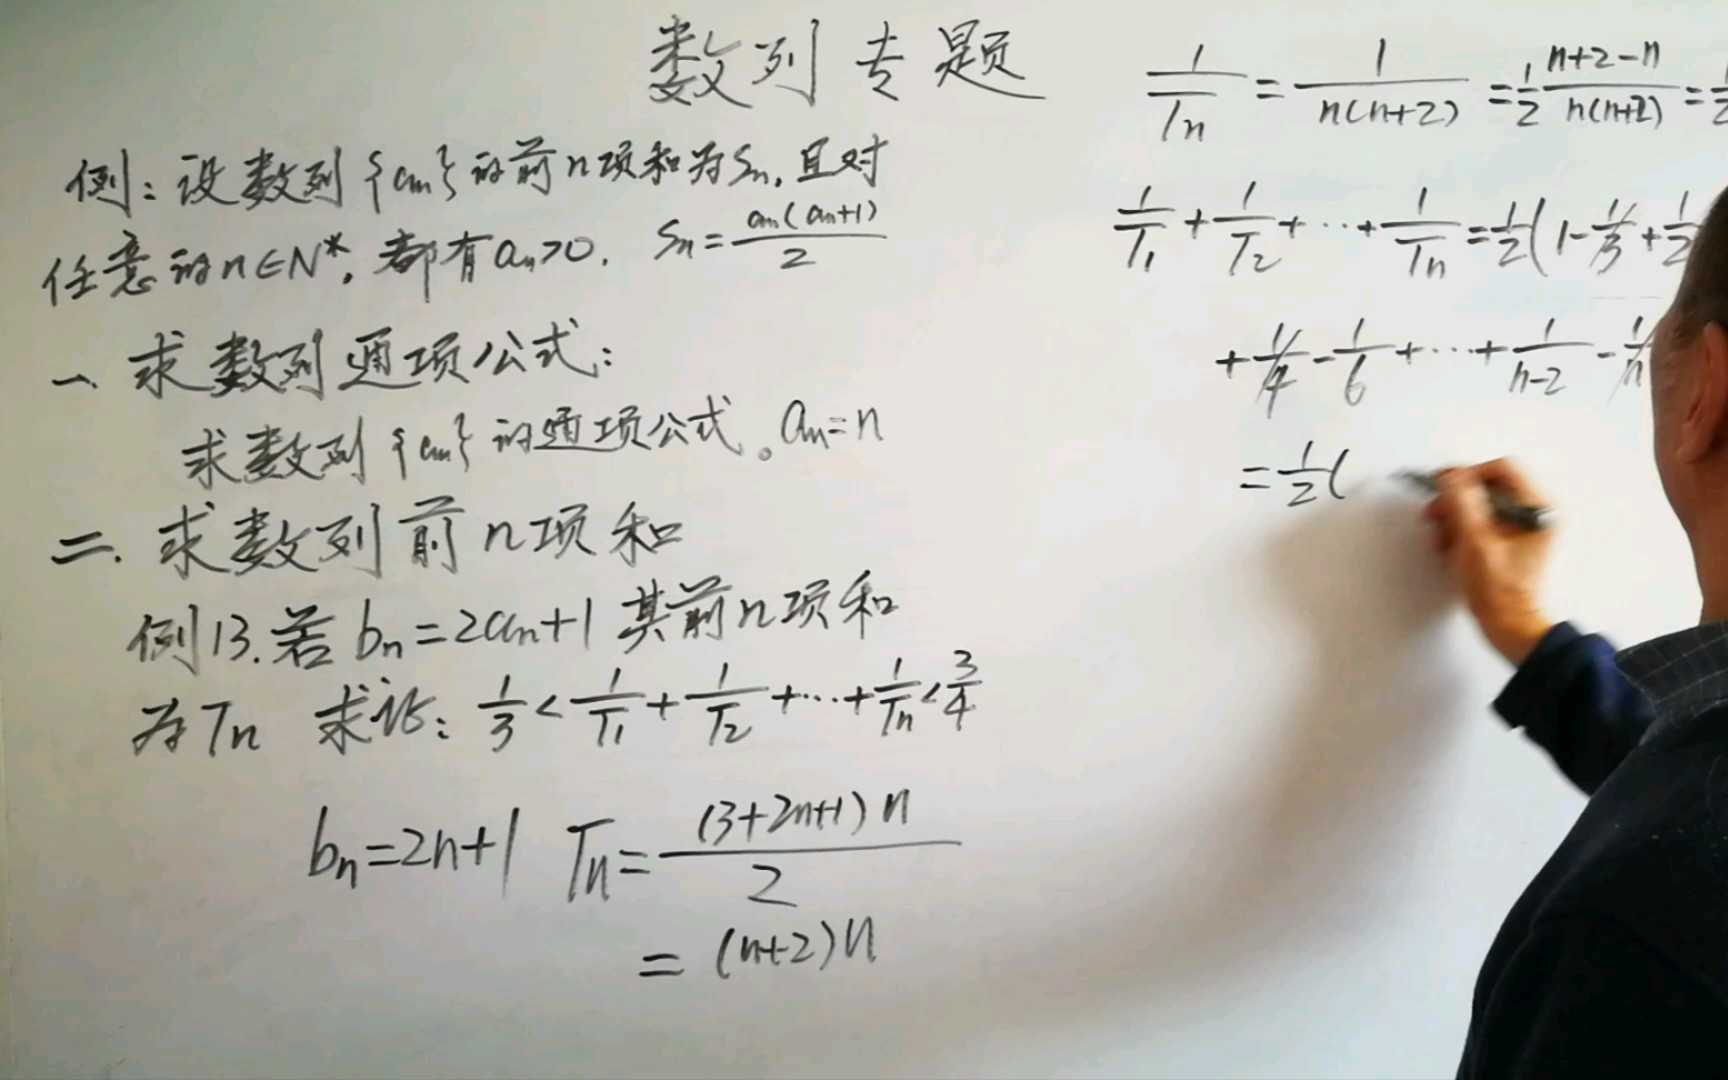 数列专题
例：设数列{an}的前n项和为Sn，且对
任意的n∈N*，都有an>0. Sn=an(an+1)/2
一. 求数列通项公式：
求数列{an}的通项公式。an=n
二. 求数列前n项和
例13.若bn=2an+1其前n项和
为Tn 求证：1/3<1/T1+1/T2+…+1/Tn<3/4
bn=2n+1 Tn=(3+2n+1)n/2
=(n+2)n
1/Tn=1/n(n+2)=1/2 n+2-n/n(n+2)=
1/T1+1/T2+…+1/Tn=1/2(1-1/3+1/2
+1/4-1/6+…+1/n-2-1/n
=1/2(